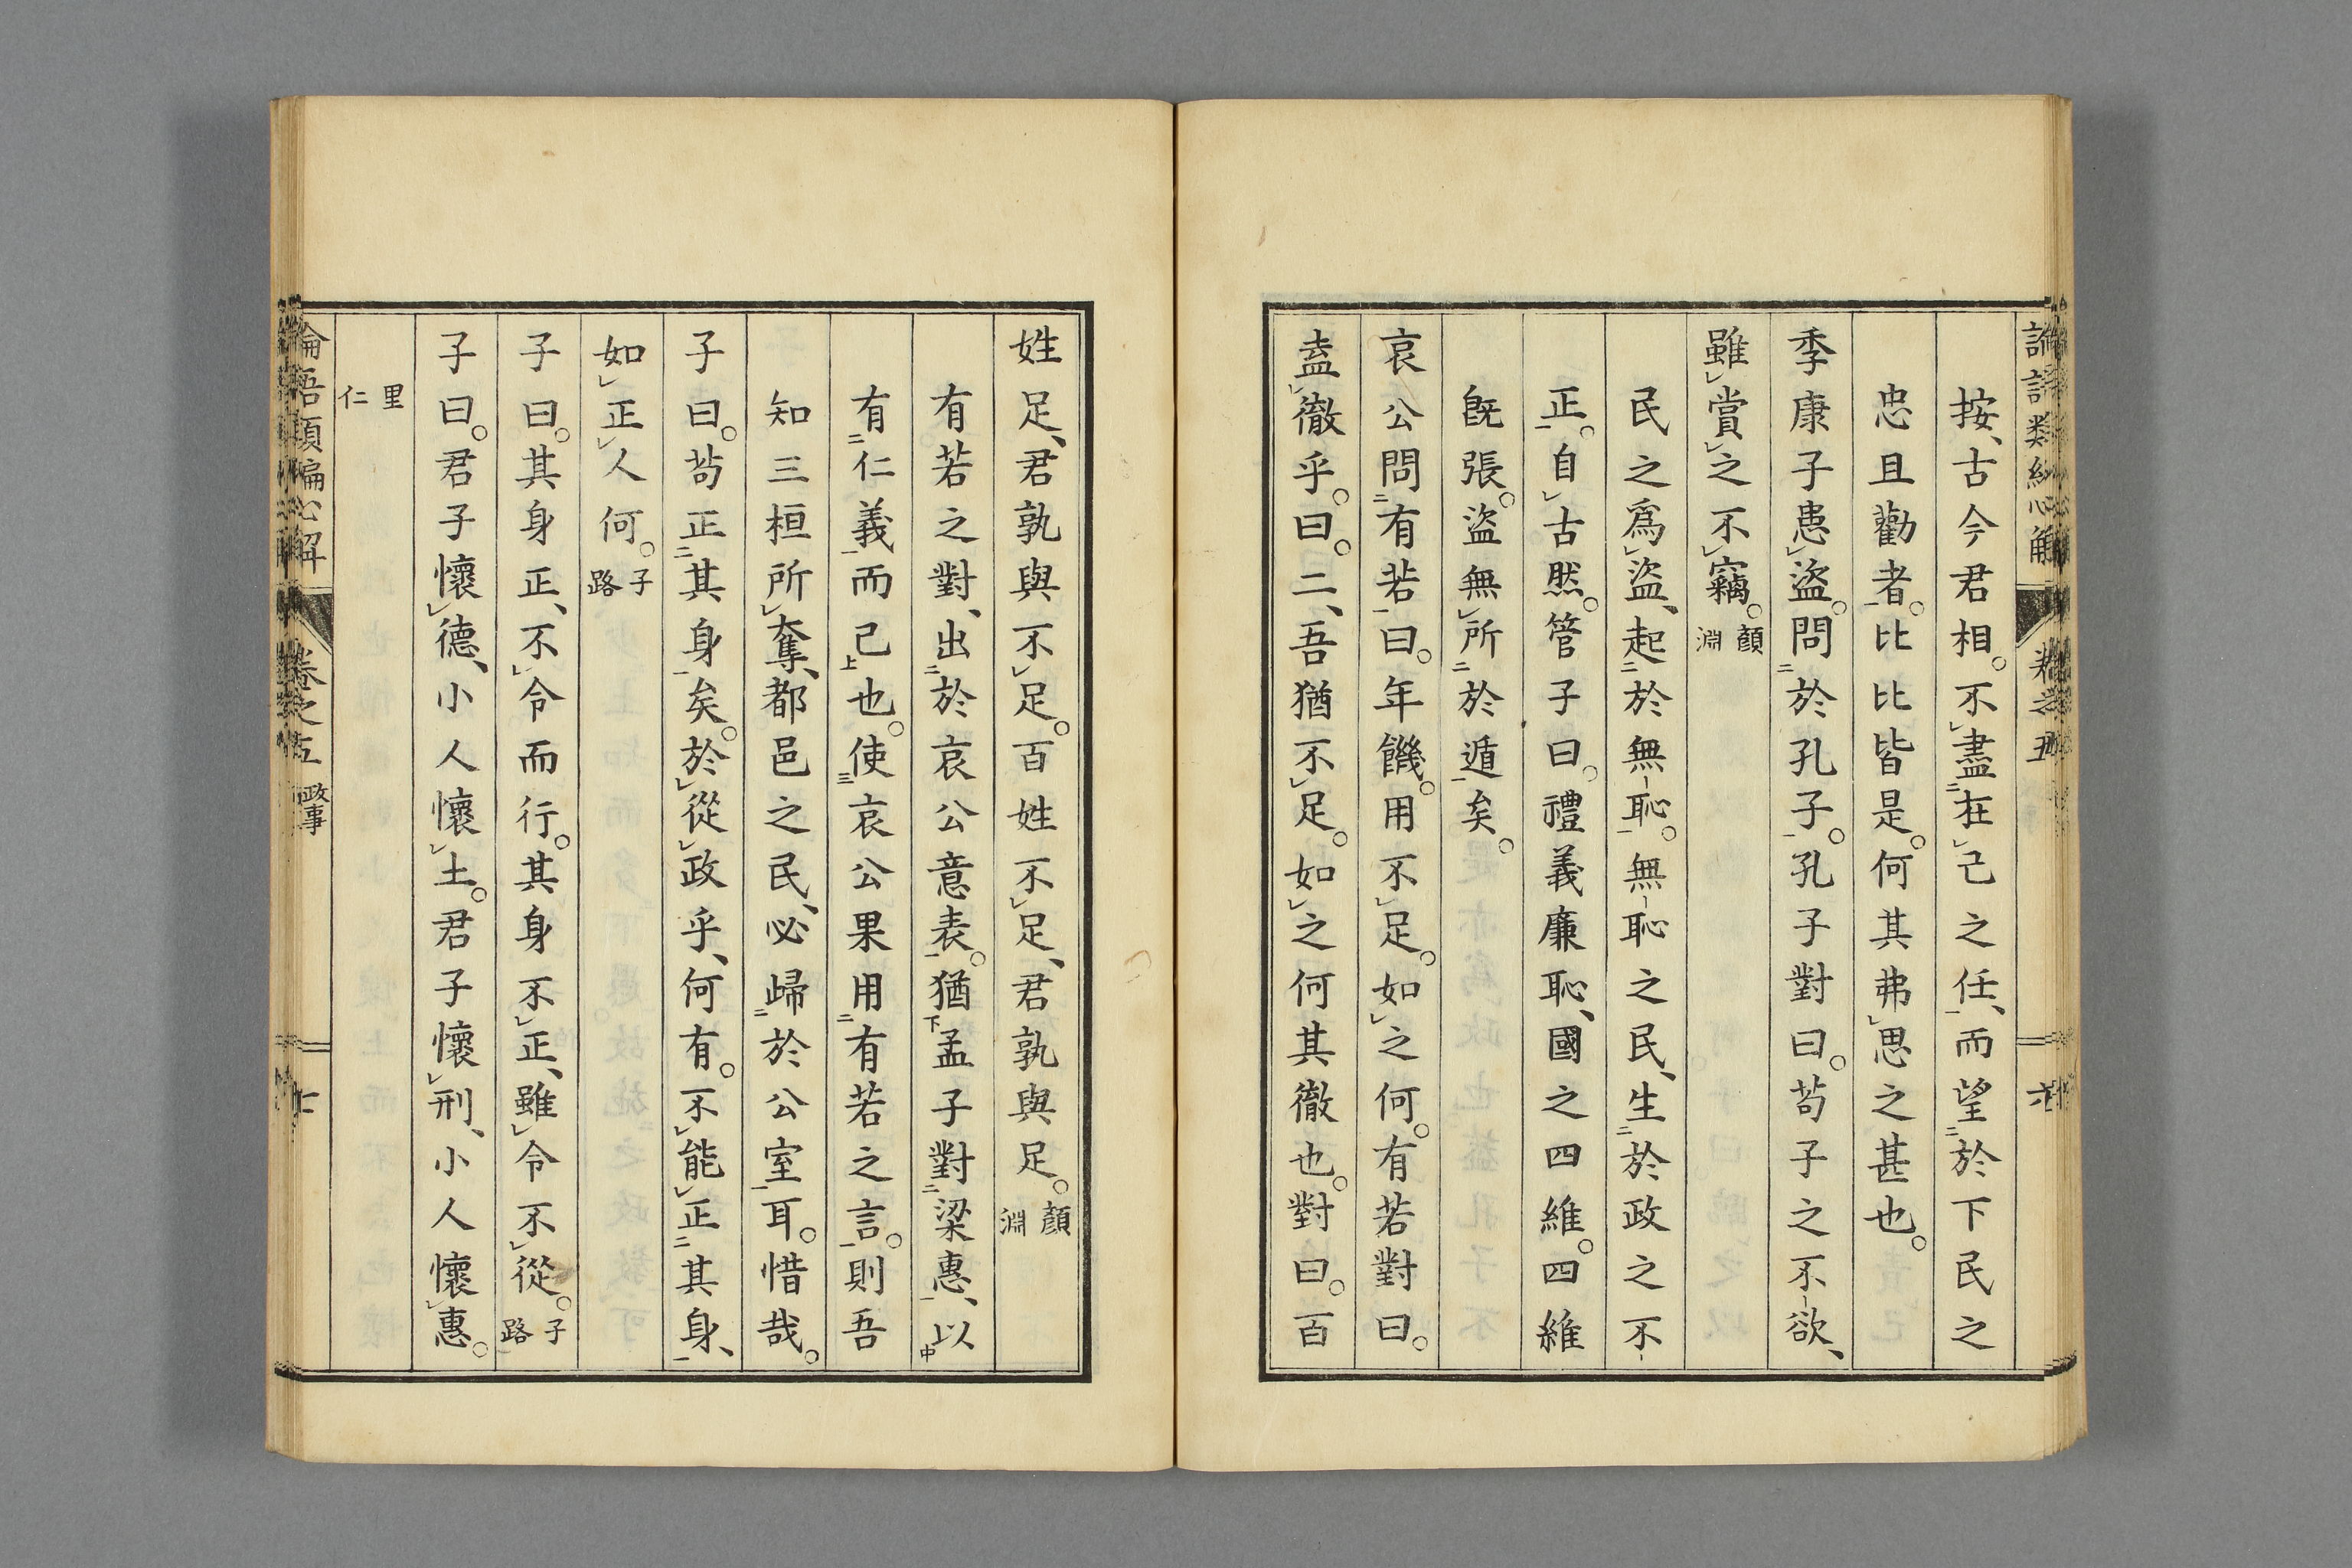 按、古今君相。不盡在己之任、而望於下民之
忠且勸者。比比皆是。何其弗思之甚也。
季康子患盜。問於孔子。孔子對曰。苟子之不欲、
雖賞之不竊。顏淵
民之爲盜、起於無恥。無恥之民、生於政之不
正。自古然。管子曰。禮義廉恥、國之四維。四維
既張。盜無所於遁矣。
哀公問有若曰。年饑。用不足。如之何。有若對曰。
盍徹乎。曰。二、吾猶不足。如之何其徹也。對曰。百
姓足、君孰與不足。百姓不足、君孰與足。顏淵
有若之對、出於哀公意表。猶孟子對梁惠、以
有仁義而已也。使哀公果用有若之言。則吾
知三桓所奪、都邑之民、必歸於公室耳。惜哉。
子曰。苟正其身矣。於從政乎、何有。不能正其身、
如正人何。子路
子曰。其身正、不令而行。其身不正、雖令不從。子路
子曰。君子懷德、小人懷土。君子懷刑、小人懷惠。
里仁
卷之五 政事